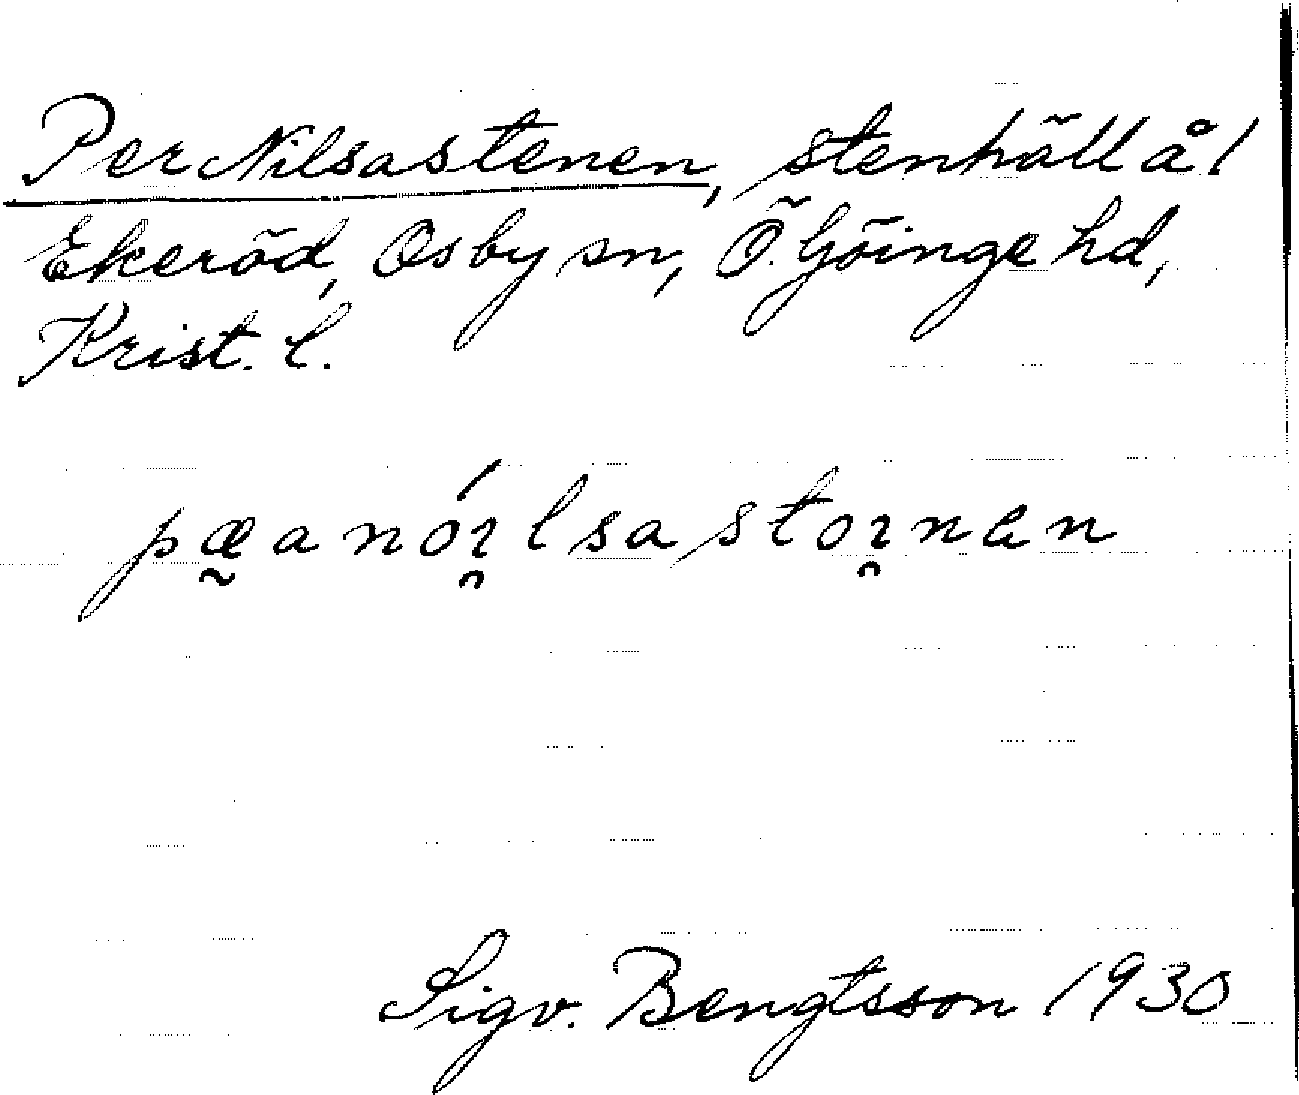 Per Nilsastenen, stenhäll å 1
Ekeröd, Osby sn, Ö. Göinge hd,
Krist. l.
pæ̰anóı̯lsastoı̯nen
Sigv. Bengtsson 1930